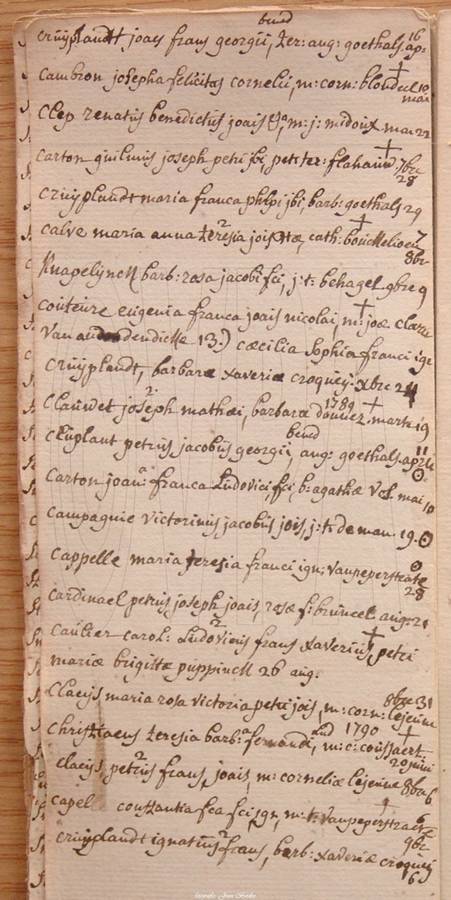 bend
cruyplandt joaes frans georgii, ter: aug: goethals 16 ap:
Cambron josepha felicitas cornelii, m: corn: blondeel 10 mai
Clep renatus benedictus joais m: j: midoux mai 22
Carton guilmus joseph petri jbi, pet: ter: flahauw 7bre 28
Cruyplandt maria franca phlpi jbi, barb: goethals 29
Calve maria anna teresia jois cath: bouckelioen 7 8br
Knapelynck barb: rosa jacobi fci, j: t: behagel 9bre 9
couteure eugenia franca joais nicolai, m: joæ clare
Van dendicke 13.) cæcilia sophia franci ign
cruyplandt, barbaræ xaveriæ croquey: xbre 24
Clauwet joseph mathæi, barbara donnez 1789 marti 19
bend
Cruplant petrus jacobus georgii, aug: goethals april 11
Carton joan: franca Ludovici fci, b: agathæ Vol. mai 10
Campagnie victorinus jacobus jois, j: t: de man. 19.
Cappelle maria teresia franci ign: vanpeperstrate 28
Cardinael petrus joseph joais, rosæ f: bruneel aug: 21
Caulier carol: Ludovicus frans xaverius, petri
mariæ brigittæ puppinck 26 aug.
Claeys maria rosa victoria petri jois, m: corn: lejeune 8bre 31
Christiaens teresia barb: fernandi, m: c: coussaert 1790 20 juni
claeys petrus frans joais, m: corneliæ lejeune 8bre 6
Capel constantia fca fci ign, m: t: vanpeperstraete 6 9br
cruyplandt ignatius frans, barb: xaveriæ croquey 16